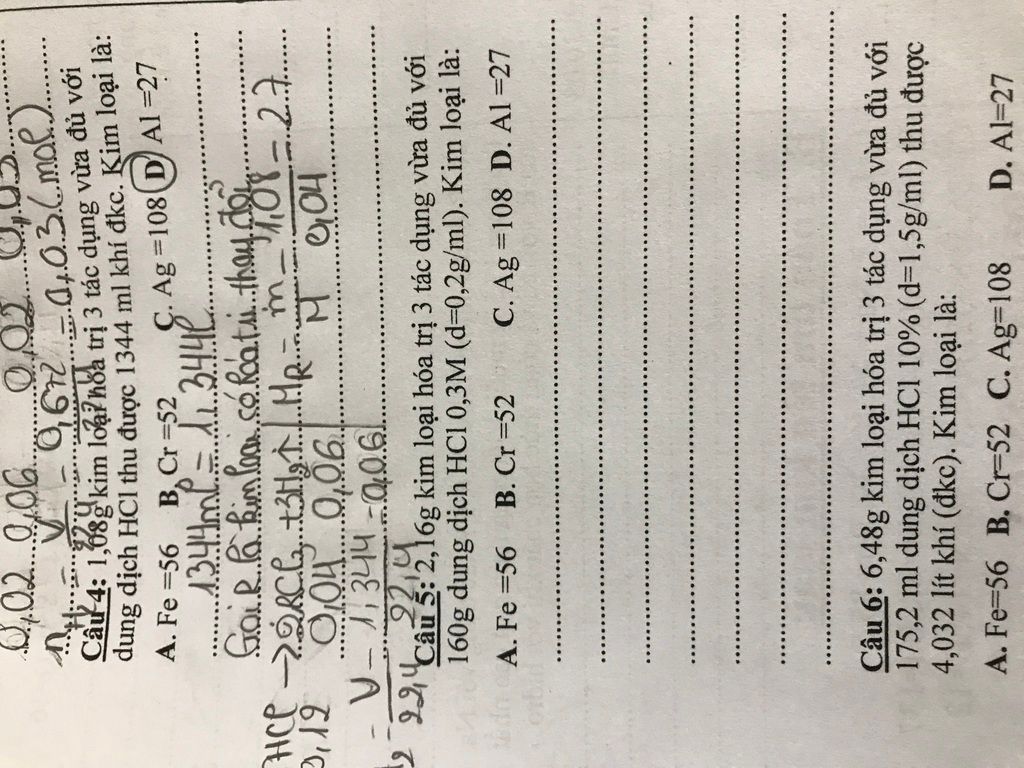 0,02 0,06 0,02 0,03
nH₂ = V/22,4 = 0,672/22,4 = 0,03 (mol)
Câu 4: 1,08g kim loại hóa trị 3 tác dụng vừa đủ với
dung dịch HCl thu được 1344 ml khí đkc. Kim loại là:
A. Fe =56 B. Cr =52 C. Ag =108 D. Al =27
1344ml = 1,344l
Gọi R là kim loại có hóa trị thay đổi
HCl → 2RCl₃ + 3H₂↑ MR = m/M = 1,08/0,04 = 27
0,12 0,04 0,06
= V/22,4 = 1,344/22,4 = 0,06
Câu 5: 2,16g kim loại hóa trị 3 tác dụng vừa đủ với
160g dung dịch HCl 0,3M (d=0,2g/ml). Kim loại là:
A. Fe =56 B. Cr =52 C. Ag =108 D. Al =27
Câu 6: 6,48g kim loại hóa trị 3 tác dụng vừa đủ với
175,2 ml dung dịch HCl 10% (d=1,5g/ml) thu được
4,032 lít khí (đkc). Kim loại là:
A. Fe=56 B. Cr=52 C. Ag=108 D. Al=27